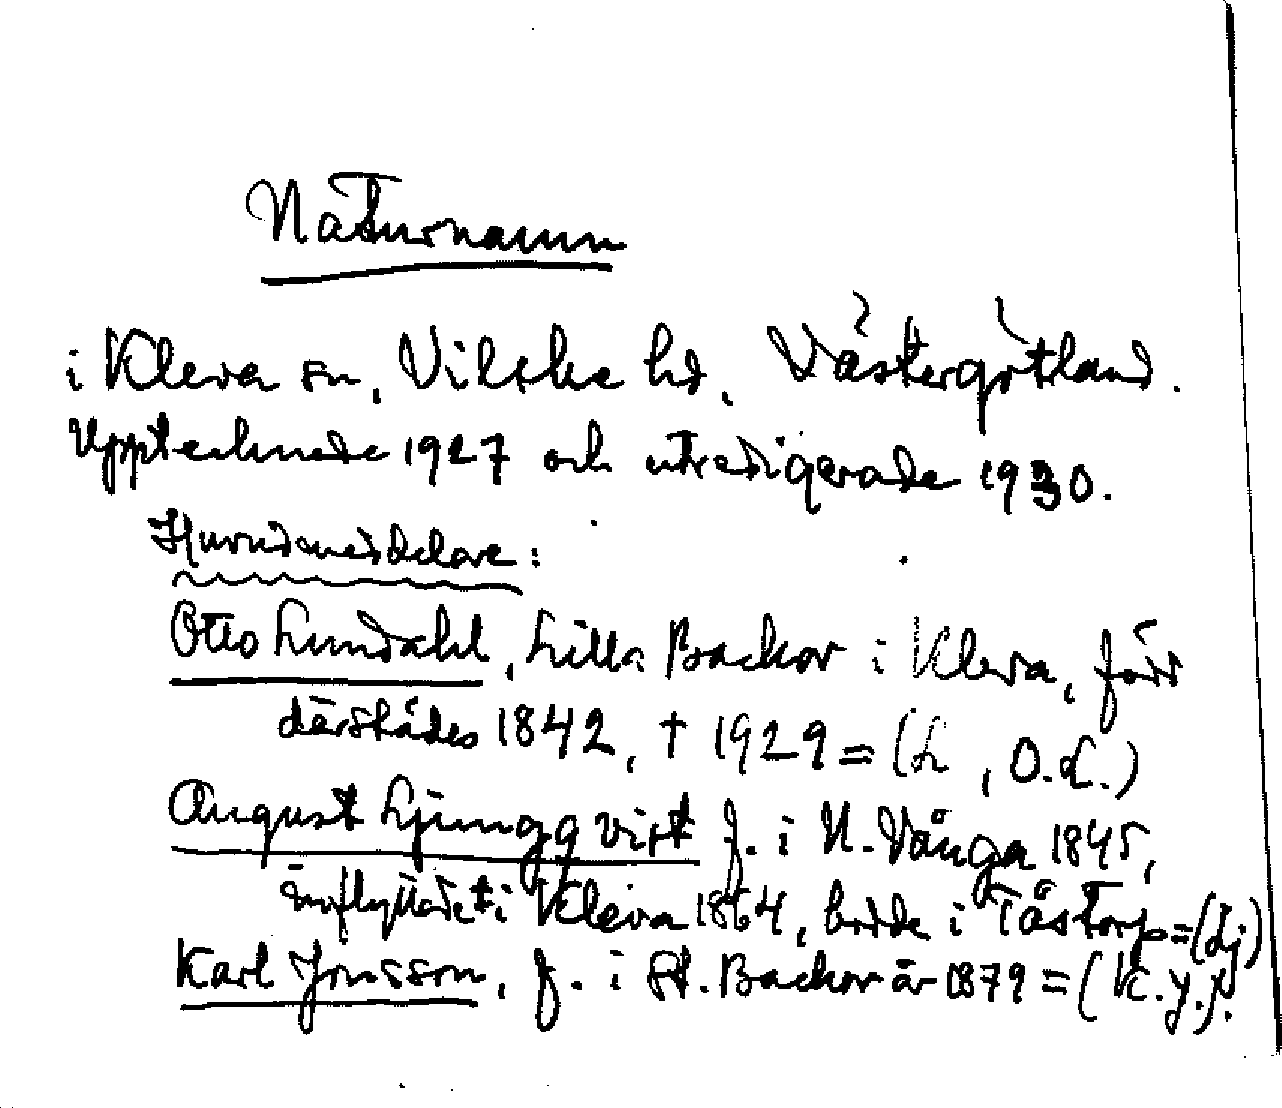 Naturnamn
i Kleva sn, Vilske hd, Västergötland.
Upptecknade 1927 och utredigerade 1930.
Huvudmeddelare:
Otto Lundahl, Lilla Backor i Kleva, född
därstädes 1842, † 1929 = (L , O.L.)
August Ljunggqvist f. i N. Vånga 1845,
inflyttade t. i Kleva 1864, bodde i Tåstorp = (Lj)
Karl Jonsson, f. i St. Backor år 1879 = (K.J.).